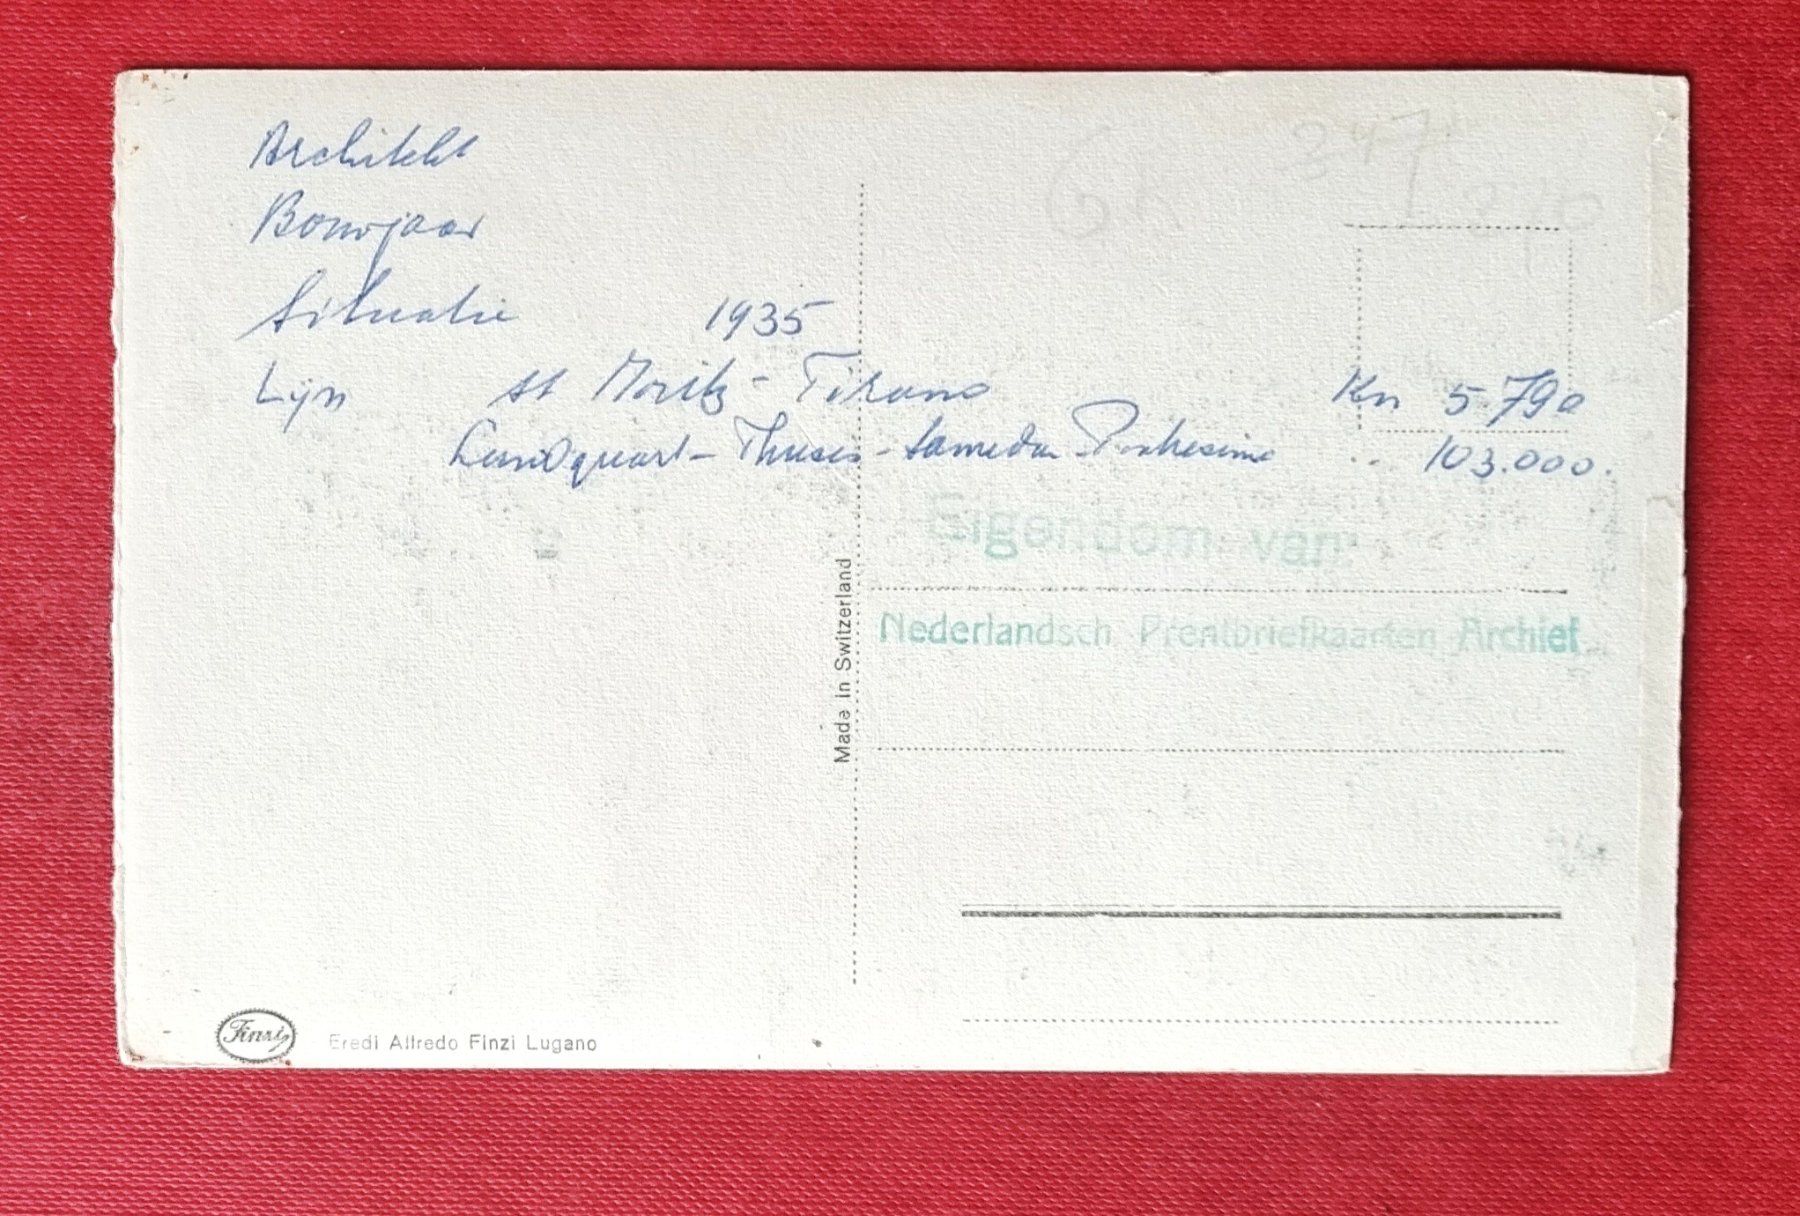 Architekt
Bouwjaar
Situatie 1935
Lijn St Moritz - Tirano Km 5.790
Landquart - Thusis - Samedan Pontresina 103.000.
347
Eigendom van:
Nederlandsch Prentbriefkaarten Archief
Made in Switzerland
Finzi
Eredi Alfredo Finzi Lugano